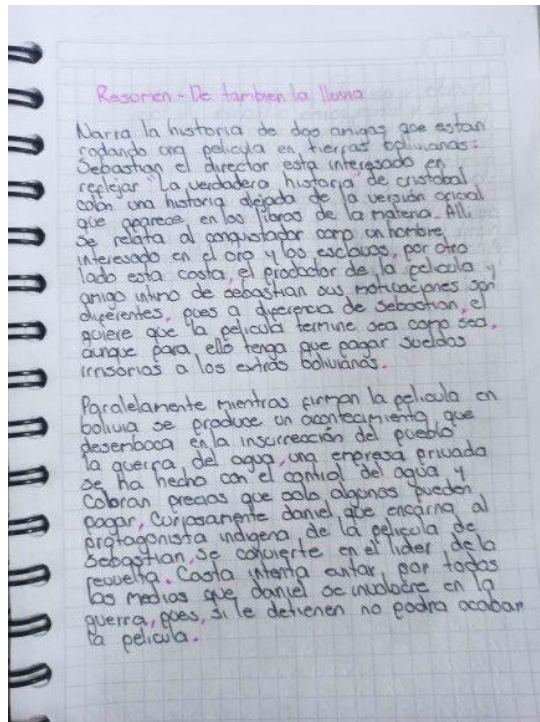 Resumen - De tambien la lluvia
Narra la historia de dos amigos que estan
rodando una pelicula en tierras bolivianas:
Sebastian el director esta interesado en
reflejar "La verdadera historia" de cristobal
colon una historia alejada de la versión oficial
que aparece en los libros de la materia. Alli
se relata al conquistador como un hombre
interesado en el oro y los esclavos, por otro
lado esta costa, el productor de la pelicula y
amigo intimo de sebastian sus motivaciones son
diferentes, pues a diferencia de sebastian, el
quiere que la pelicula termine sea como sea,
aunque para ello tenga que pagar sueldos
irrisorios a los extras bolivianos.
Paralelamente mientras firman la pelicula en
bolivia se produce un acontecimiento que
desenboca en la insurreación del pueblo
la guerra del agua, una empresa privada
se ha hecho con el control del agua y
Cobran precios que solo algunos pueden
pagar, Curiosamente daniel que encarna al
protagonista indigena de la pelicula de
Sebastian, se convierte en el lider de la
revuelta. Costa intenta evitar, por todos
los medios que daniel se involucre en la
guerra, pues, si le detienen no podra acabar
la pelicula.